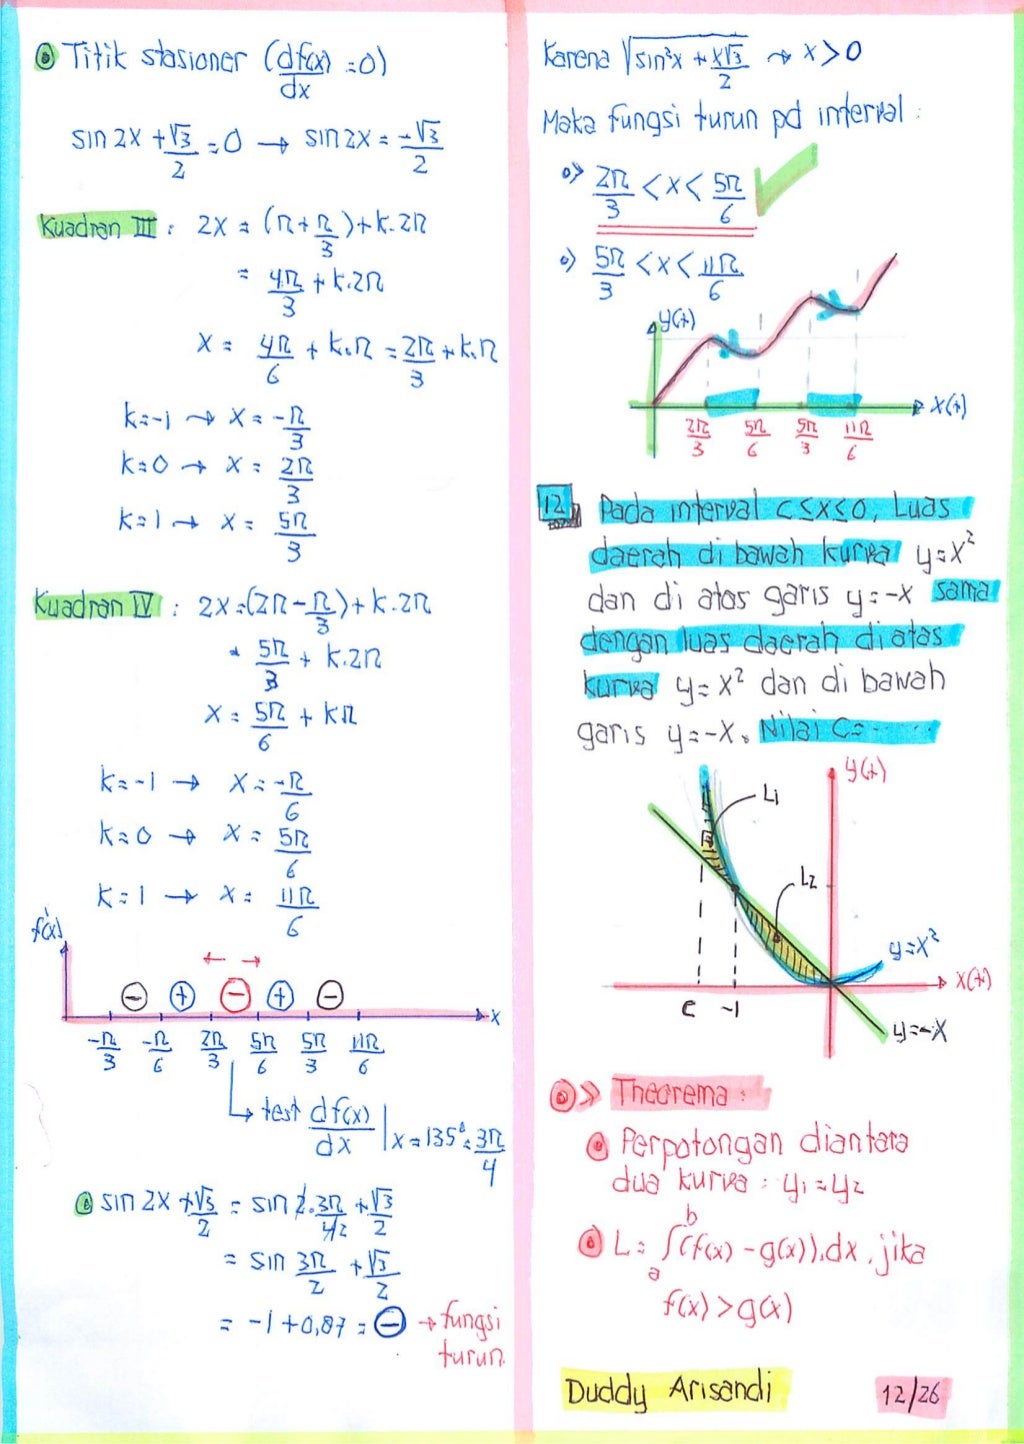 Titik stasioner (df(x)/dx = 0)
sin 2x + √3/2 = 0 → sin 2x = -√3/2
Kuadran III : 2x = (π + π/3) + k.2π
= 4π/3 + k.2π
x = 4π/6 + k.π = 2π/3 + k.π
k=-1 → x = -π/3
k=0 → x = 2π/3
k=1 → x = 5π/3
Kuadran IV : 2x = (2π - π/3) + k.2π
= 5π/3 + k.2π
x = 5π/6 + kπ
k=-1 → x = -π/6
k=0 → x = 5π/6
k=1 → x = 11π/6
f'(x)
← →
- + - + -
x
-π/3 -π/6 2π/3 5π/6 5π/3 11π/6
test df(x)/dx | x = 135° = 3π/4
sin 2x + √3/2 = sin 2.3π/4/2 + √3/2
= sin 3π/2 + √3/2
= -1 + 0,87 = - → fungsi
turun
Karena √sin²x + x√3/2 → x > 0
Maka fungsi turun pd interval :
2π/3 < x < 5π/6
5π/3 < x < 11π/6
y(+)
x(+)
2π/3 5π/6 5π/3 11π/6
12 Pada interval c ≤ x ≤ 0, Luas
daerah di bawah kurva y = x²
dan di atas garis y = -x sama
dengan luas daerah di atas
kurva y = x² dan di bawah
garis y = -x. Nilai c = ......
y(+)
L1
L2
y = x²
x(+)
c -1
y = -x
Theorema :
Perpotongan diantara
dua kurva : y1 = y2
L = ∫ₐᵇ (f(x) - g(x)).dx, jika
f(x) > g(x)
Duddy Arisandi 12/26